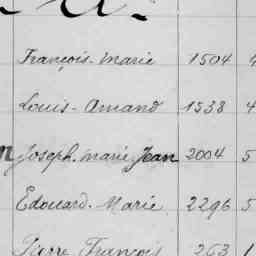 François-Marie 1504 4
Louis-Amand 1538 4
Joseph. Marie Jean 2004 5
Edouard-Marie 2296 5
Pierre François 263 1